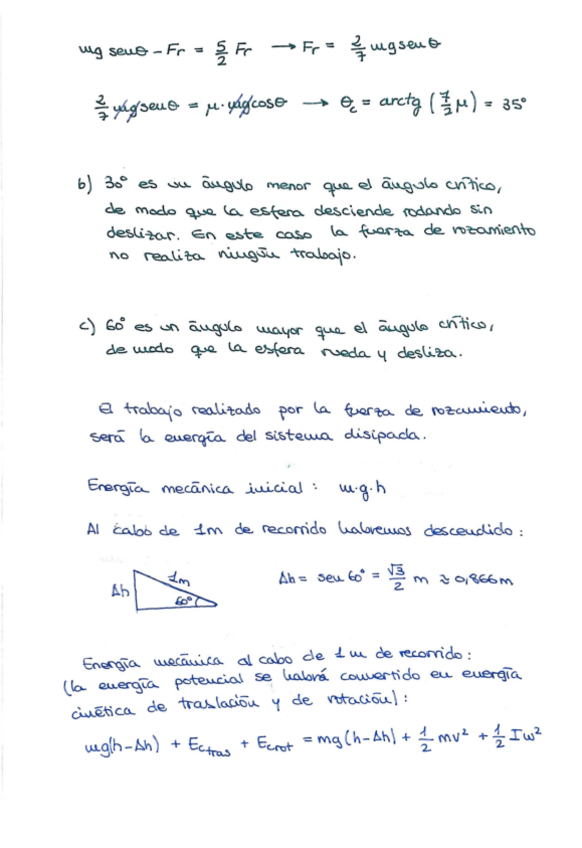 mg senθ - Fr = 5/2 Fr → Fr = 2/7 mg senθ
2/7 mg senθ = μ·mg cosθ → θc = arctg (7/2 μ) = 35°
b) 30° es un ángulo menor que el ángulo crítico,
de modo que la esfera desciende rodando sin
deslizar. En este caso la fuerza de rozamiento
no realiza ningún trabajo.
c) 60° es un ángulo mayor que el ángulo crítico,
de modo que la esfera rueda y desliza.
El trabajo realizado por la fuerza de rozamiento,
será la energía del sistema disipada.
Energía mecánica inicial : m·g·h
Al cabo de 1m de recorrido habremos descendido :
Δh
1m
60°
Δh = sen 60° = √3/2 m ≈ 0,866m
Energía mecánica al cabo de 1m de recorrido:
(la energía potencial se habrá convertido en energía
cinética de traslación y de rotación):
mg(h-Δh) + Ectras + Ecrot = mg(h-Δh) + 1/2 mv² + 1/2 Iω²